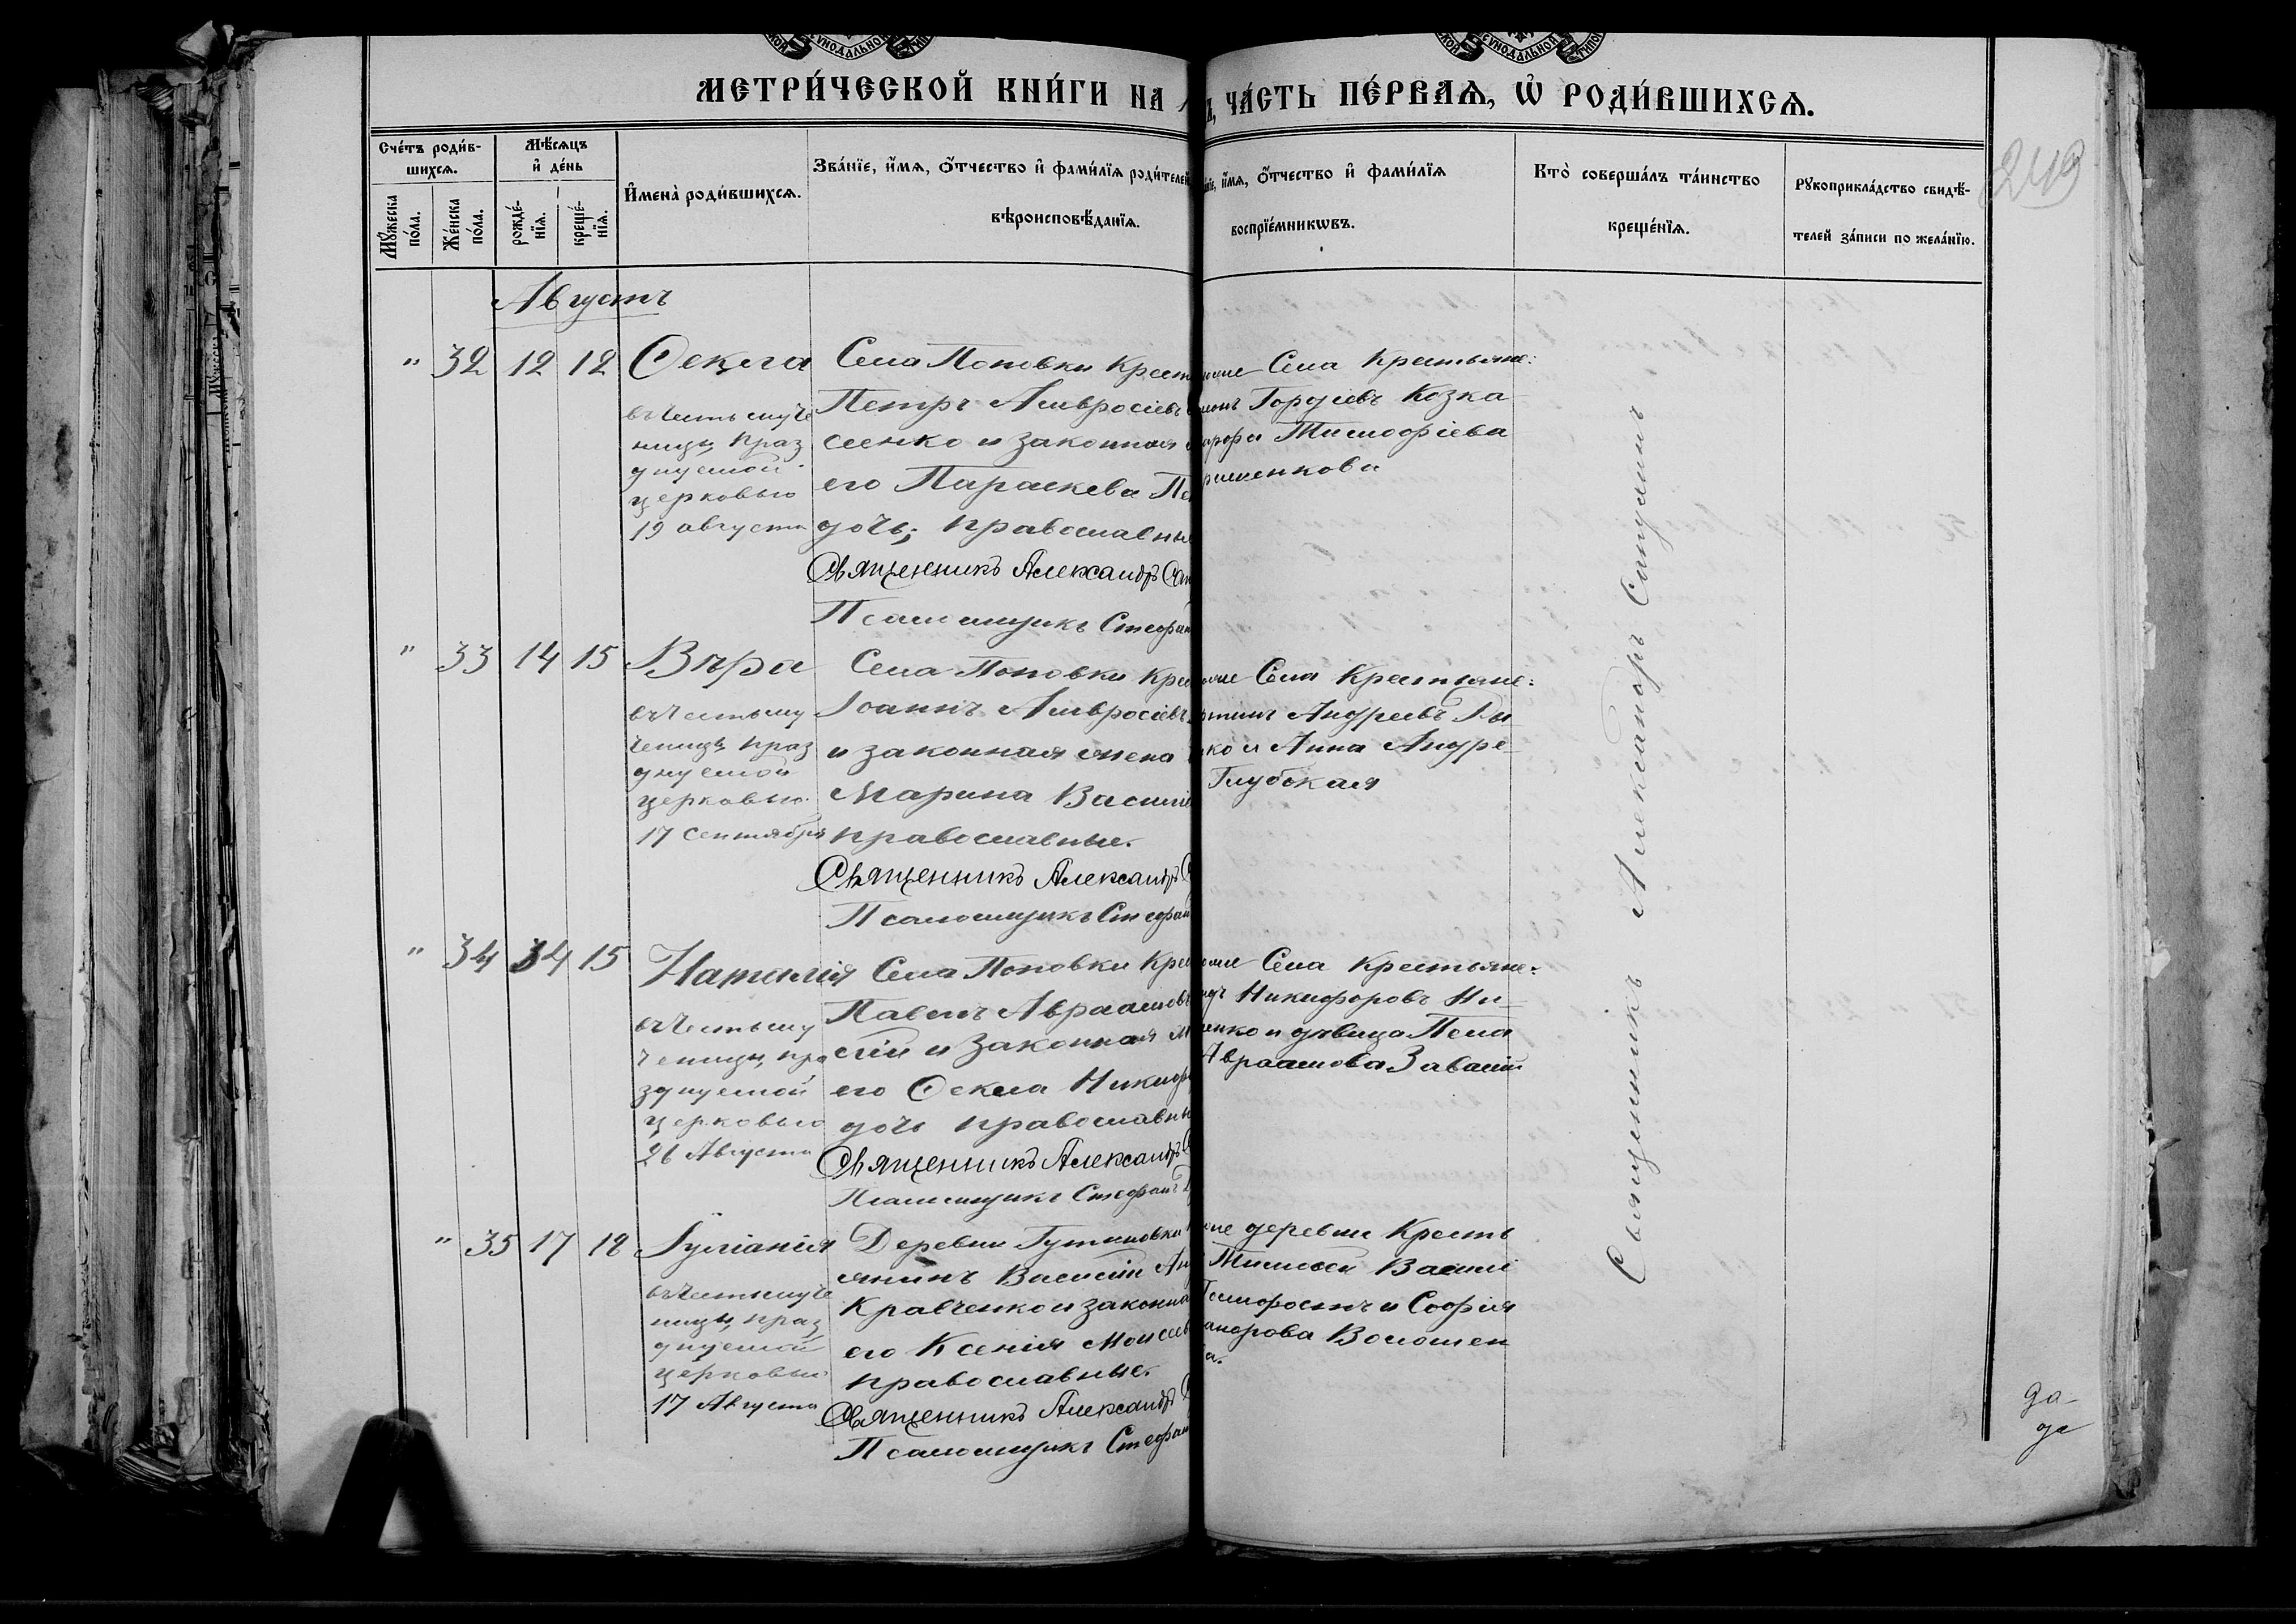 МЕТРИ́ЧЕСКОЙ КНИ́ГИ НА
ЧА́СТЬ ПЕ́РВАѦ, Ѡ҆ РОДИ́ВШИХСѦ.
Сче́тъ роди́в-
шихсѧ.
Мꙋ́жеска
по́ла.
Же́нска
по́ла.
Мѣ́сѧцъ
и҆ де́нь
рожде́-
нїѧ.
креще́-
нїѧ.
И҆мена̀ роди́вшихсѧ.
Зва́нїе, и҆́мѧ, ѻ҆́тчество и҆ фами́лїѧ роди́телей
вѣроисповѣ́данїѧ.
и҆́мѧ, ѻ҆́тчество и҆ фами́лїѧ
воспрїе́мникѡвъ.
Кто̀ соверша́лъ та́инство
креще́нїѧ.
Рꙋкоприкла́дство свидѣ́-
телей за́писи по жела́нїю.
249
Августъ
" 32 12 12 Ѳекла
въ честь муче
ницы праз
днуемой
церковью
19 августа
Села Поповки Крест
Петръ Амвросіевъ
сенко и законная
его Параскева Пе
дочь; православны
Священникъ Александръ Сап
Псаломщикъ Стефан
Села Крестьяне:
Гордіевъ Козка
Тимофіева
" 33 14 15 Вѣра
въ честь му
ченицы праз
днуемой
церковью
17 Сентября
Села Поповки Кре
Іоаннъ Амвросіевъ
и законная жена
Марина Васил
православные.
Священникъ Александръ
Псаломщикъ Стефан
Села Крестьяне:
Андреевъ Гы
ко и Анна Андре
Глубокая
" 34 14 15 Наталія
въ честь му
ченицы, пра
зднуемой
церковью
26 Августа
Села Поповки Кре
Павелъ Авраамовъ
скій и законная
его Ѳекла Никифо
дочь православны
Священникъ Александръ
Псаломщикъ Стефанъ
Села Крестьяне:
Никифоровъ Ни
енко и дѣвица Пела
Авраамова Завалий
" 35 17 18 Іуліанія
въ честь муче
ницы, праз
днуемой
церковью
17 Августа
Деревни Гутыновки
янинъ Василій Ан
Кравченко и законна
его Ксенія Моисеев
православные.
Священникъ Александръ
Псаломщикъ Стефан
деревни Кресть
Тимофей Васили
и Софія
Волошен
Священникъ Александръ Сапухинъ